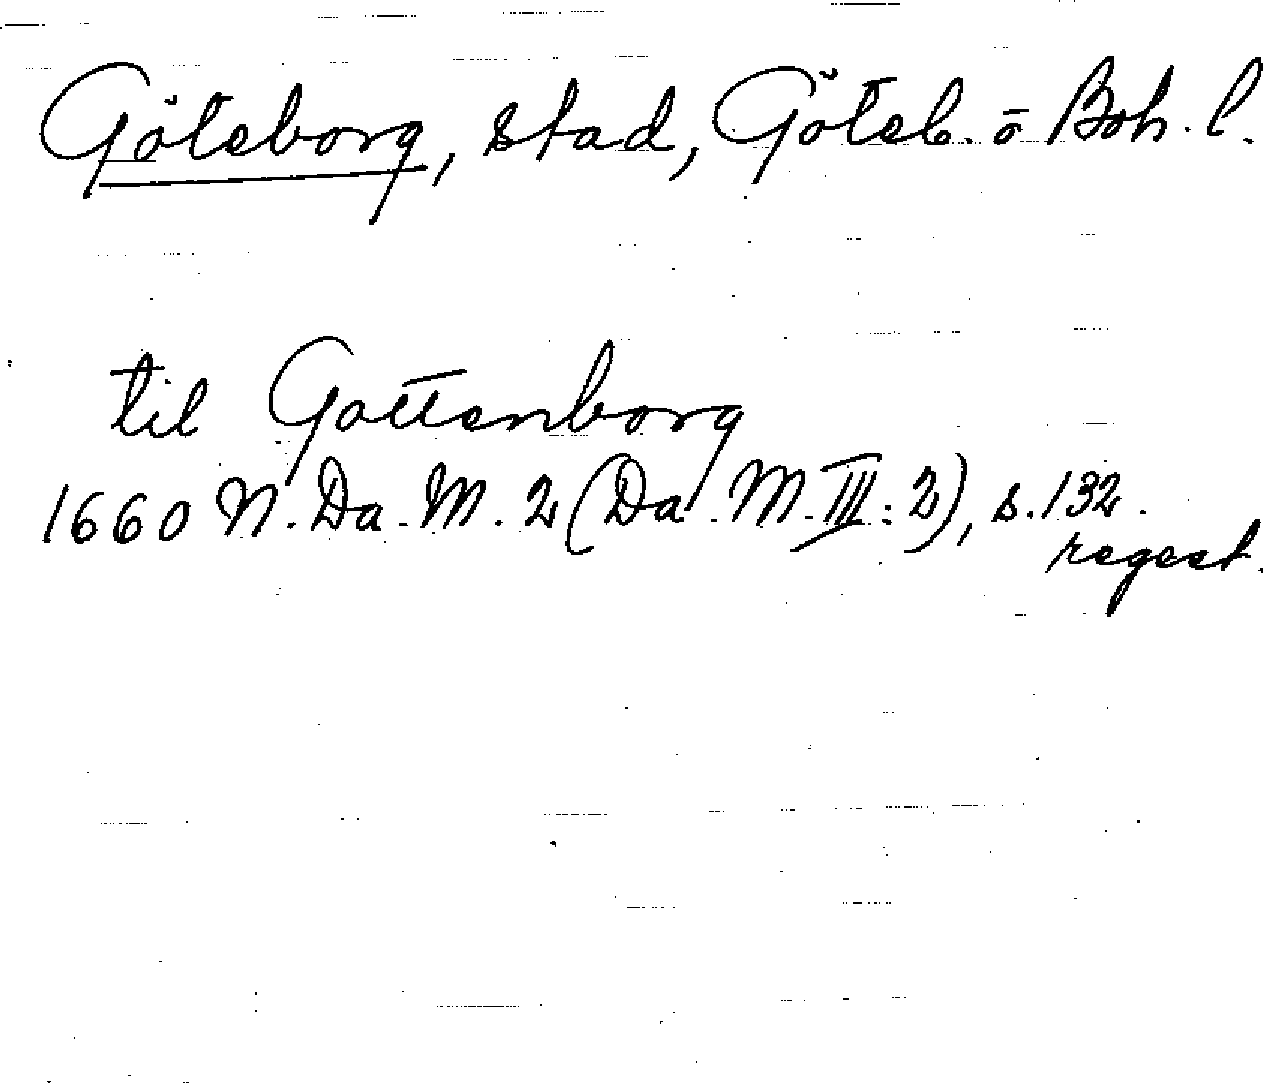 Göteborg, stad, Göteb. o Boh. l.
til Gottenborg
1660 N. Da. M. 2 (Da. M. III: 2), s. 132.
regest.